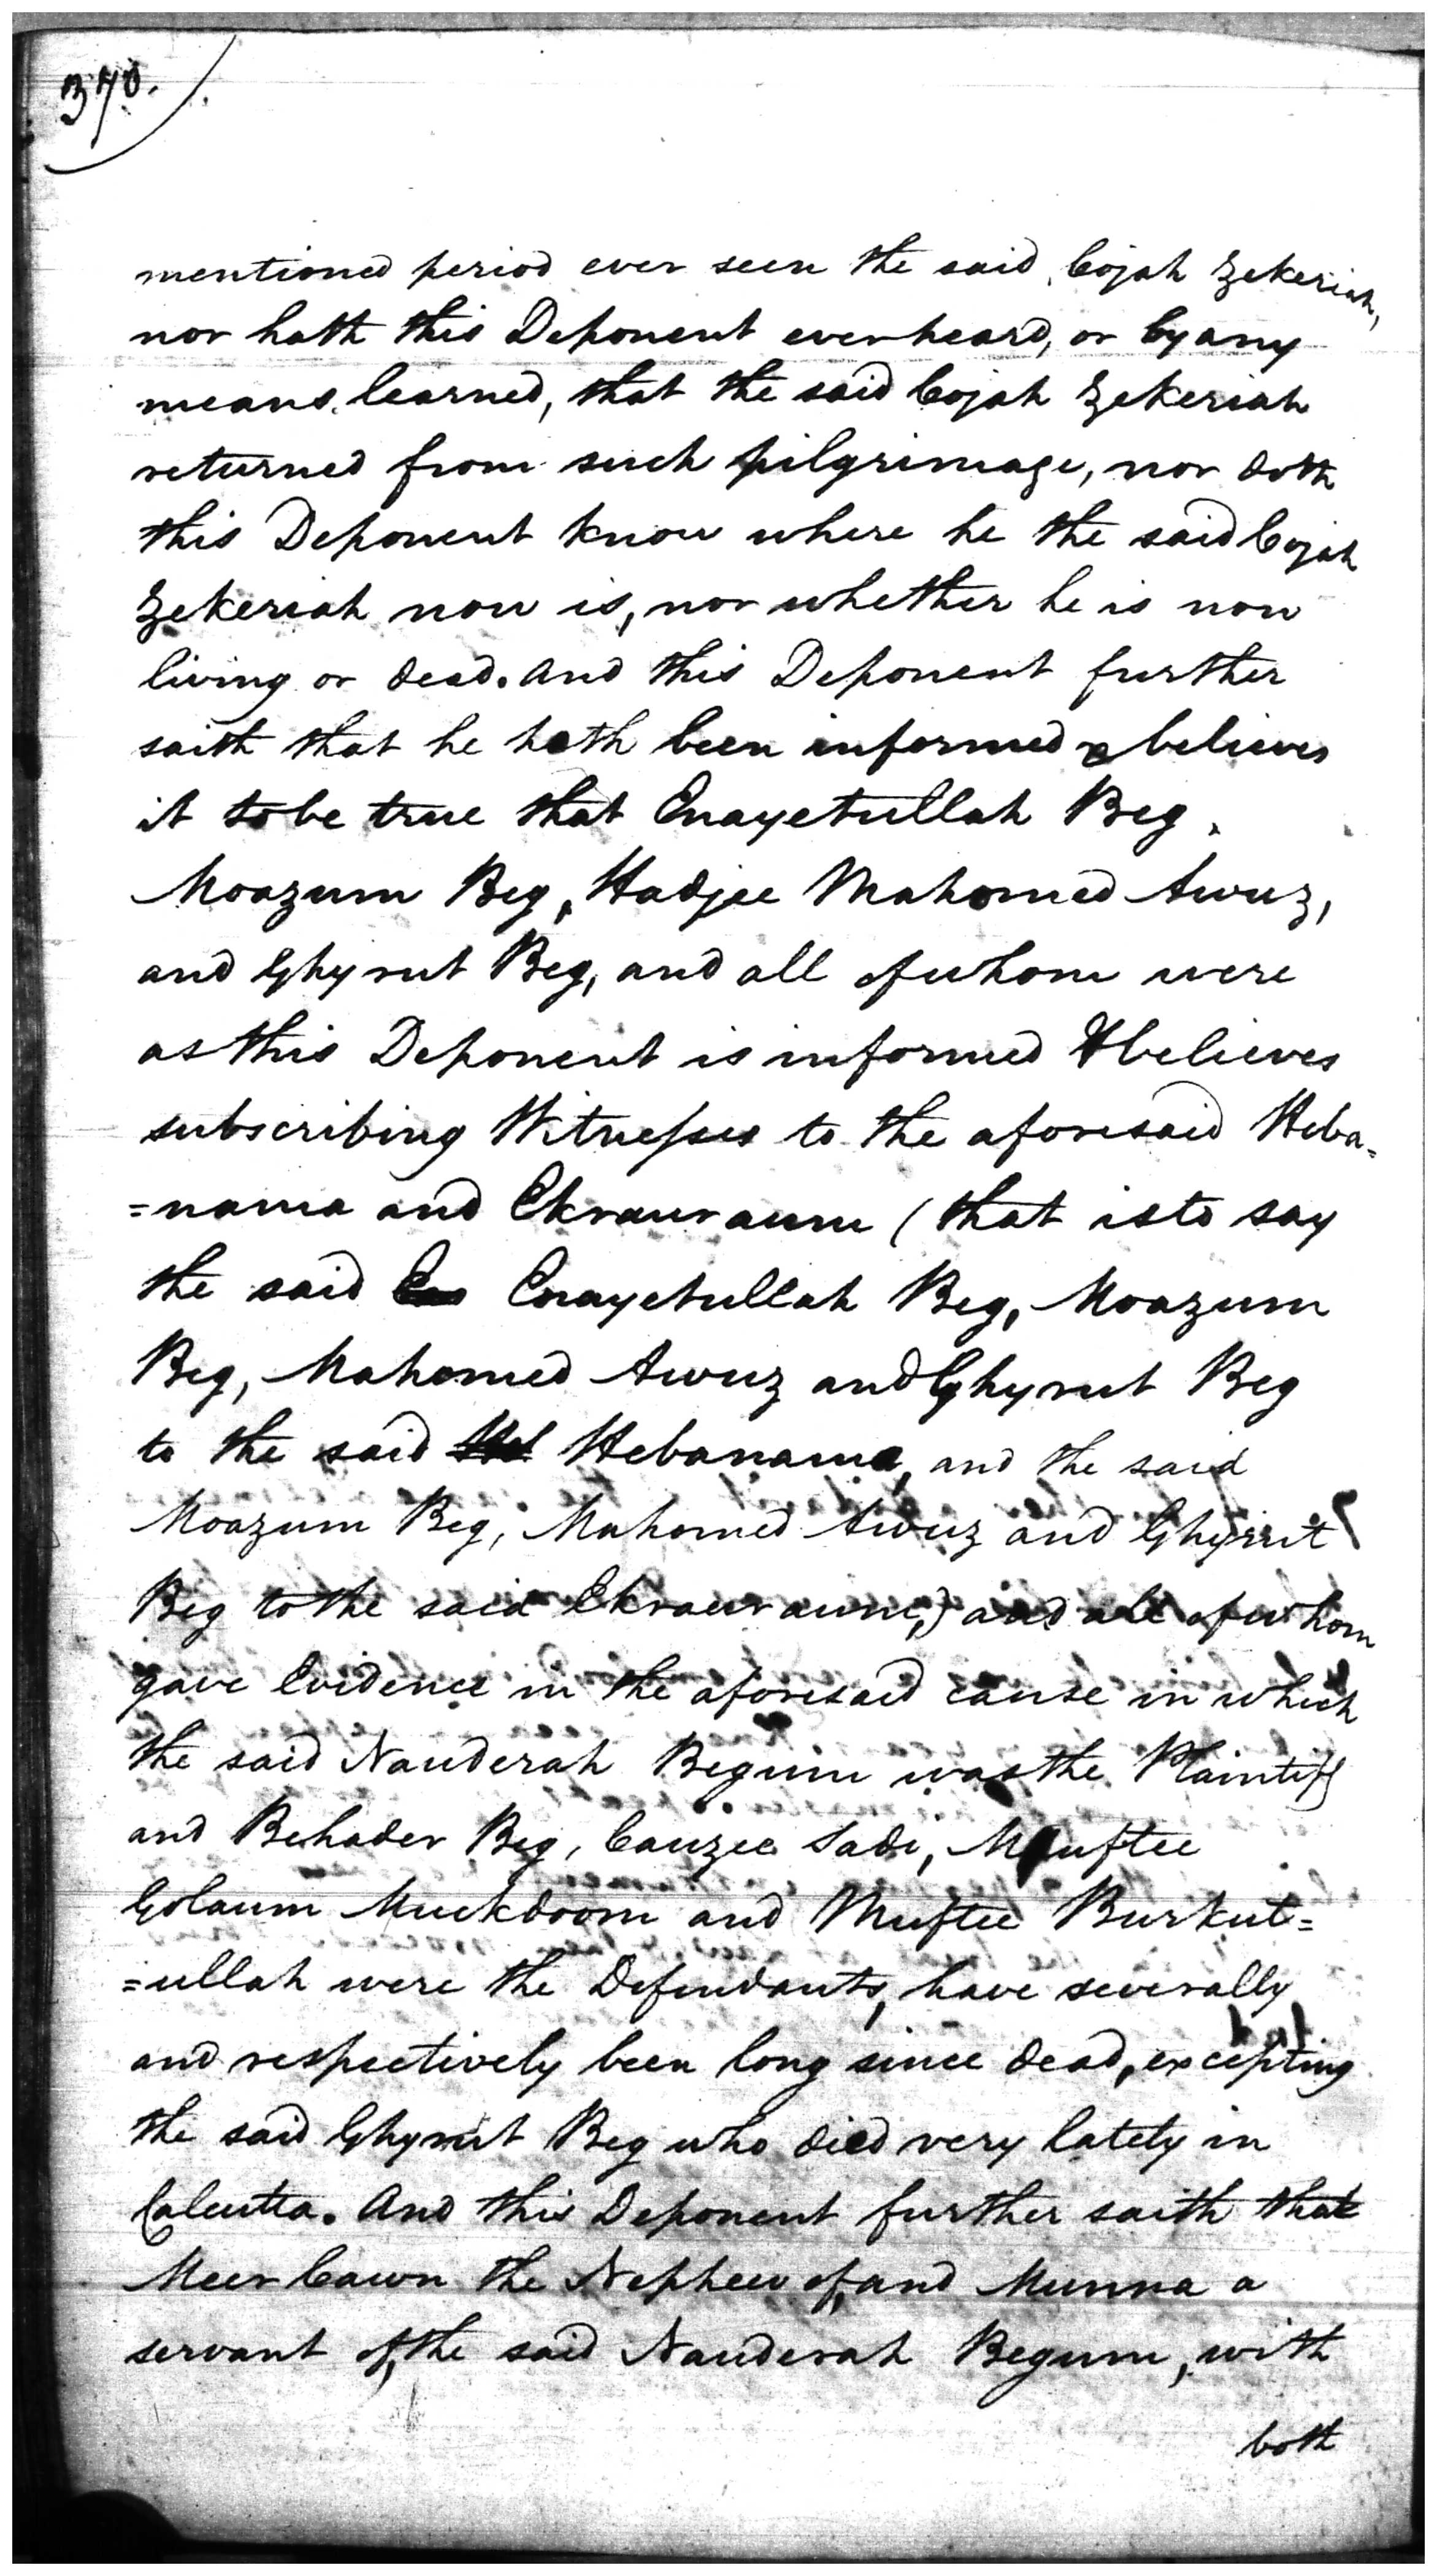 370.
mentioned period ever seen the said Cojah Zekeriah,
nor hath this Deponent ever heard, or by any
means learned, that the said Cojah Zekeriah
returned from such pilgrimage, nor doth
this Deponent know where he the said Cojah
Zekeriah now is, nor whether he is now
living or dead. And this Deponent further
saith that he hath been informed & believes
it to be true that Enayetullah Beg,
Moazum Beg, Hadjee Mahomed Awuz,
and Ghyrut Beg, and all of whom were
as this Deponent is informed & believes
subscribing Witnesses to the aforesaid Heba=
=nama and Ekrauraum (that is to say
the said Enayetullah Beg, Moazum
Beg, Mahomed Awuz and Ghyrut Beg
to the said Hebanama, and the said
Moazum Beg, Mahomed Awuz and Ghyrut
Beg to the said Ekrauraum,) and all of whom
gave Evidence in the aforesaid cause in which
the said Nauderah Begum was the Plaintiff
and Behader Beg, Cauzee Sadi, Muftee
Golaum Muckdoom and Muftee Burkut=
=ullah were the Defendants, have severally
and respectively been long since dead, excepting
the said Ghyrut Beg who died very lately in
Calcutta. And this Deponent further saith that
Meer Cawn the Nephew of, and Munna a
servant of, the said Nauderah Begum, with
both